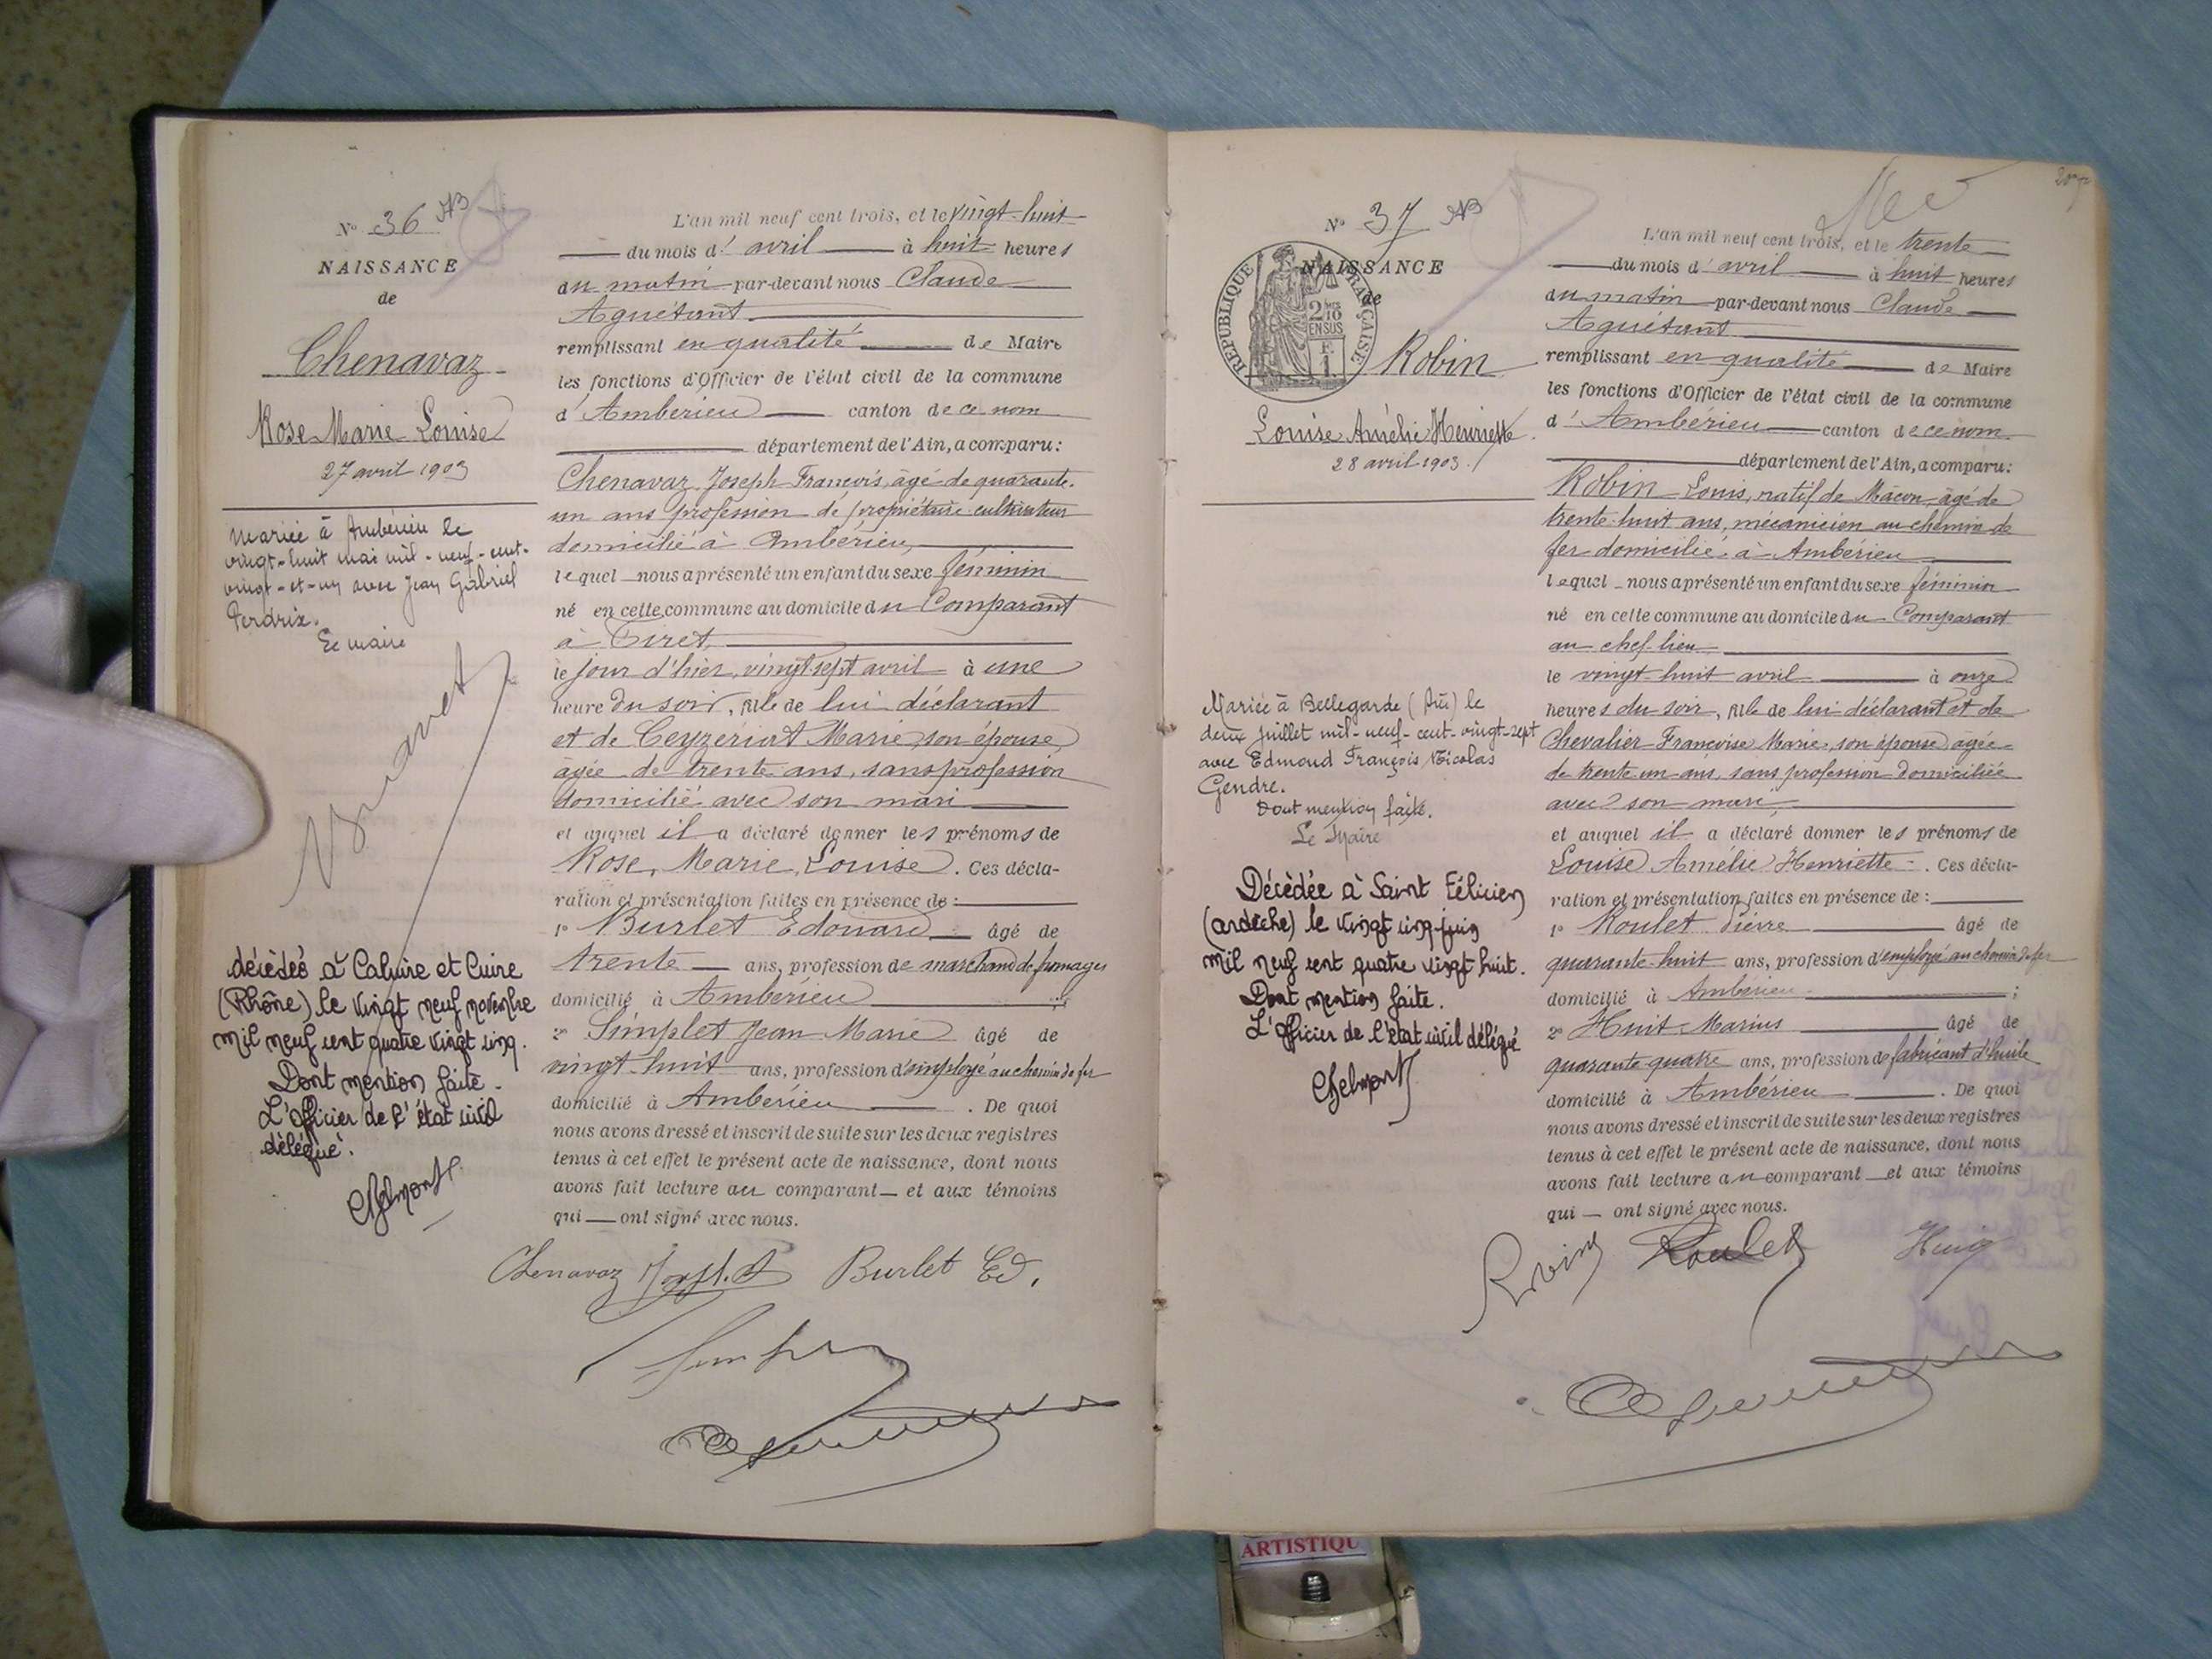 N° 36
NAISSANCE
de
Chenavaz
Rose Marie Louise
27 avril 1903
Mariée à Ambérieu le
vingt-huit mai mil-neuf-cent-
vingt-et-un avec Jean Gabriel
Perdrix.
Le maire
décédée à Caluire et Cuire
(Rhône) le vingt neuf novembre
mil neuf cent quatre vingt cinq.
Dont mention faite.
L'officier de l'état civil
délégué.
L'an mil neuf cent trois, et le vingt-huit
du mois d'avril à huit heures
du matin par-devant nous Claude
Aguétant
remplissant en qualité de Maire
les fonctions d'Officier de l'état civil de la commune
d'Ambérieu canton de ce nom
département de l'Ain, a comparu:
Chenavaz Joseph François, âgé de quarante-
un ans profession de propriétaire-cultivateur
domicilié à Ambérieu,
lequel nous a présenté un enfant du sexe féminin
né en cette commune au domicile du Comparant
à Tiret,
le jour d'hier, vingt-sept avril à une
heure du soir, fille de lui déclarant
et de Ceyzériat Marie, son épouse,
âgée de trente ans, sans profession
domicilié avec son mari
et auquel il a déclaré donner les prénoms de
Rose, Marie, Louise. Ces décla-
ration et présentation faites en présence de:
1° Burlet Edouard âgé de
trente ans, profession de marchand de fromages
domicilié à Ambérieu ;
2° Simplet Jean-Marie âgé de
vingt-huit ans, profession d'employé au chemin de fer
domicilié à Ambérieu. De quoi
nous avons dressé et inscrit de suite sur les deux registres
tenus à cet effet le présent acte de naissance, dont nous
avons fait lecture au comparant et aux témoins
qui ont signé avec nous.
Chenavaz Burlet Ed.
N° 37
NAISSANCE
de
REPUBLIQUE FRANÇAISE
2 10
EN SUS
Robin
Louise Amélie Henriette
28 avril 1903.
Mariée à Bellegarde (Ain) le
deux juillet mil-neuf-cent-vingt-sept
avec Edmond François Nicolas
Gendre.
Dont mention faite.
Le Maire
Décédée à Saint Félicien
(ardèche) le vingt cinq juin
mil neuf cent quatre vingt huit.
Dont mention faite.
L'officier de l'état civil délégué
L'an mil neuf cent trois, et le trente
du mois d'avril à huit heures
du matin par-devant nous Claude
Aguétant
remplissant en qualité de Maire
les fonctions d'Officier de l'état civil de la commune
d'Ambérieu canton de ce nom.
département de l'Ain, a comparu:
Robin Louis, natif de Mâcon, âgé de
trente-huit ans, mécanicien au chemin de
fer domicilié à Ambérieu
lequel nous a présenté un enfant du sexe féminin
né en cette commune au domicile du Comparant
au chef-lieu
le vingt-huit avril à onze
heures du soir, fille de lui déclarant et de
Chevalier Françoise Marie, son épouse âgée
de trente un ans, sans profession domiciliée
avec son mari,
et auquel il a déclaré donner les prénoms de
Louise Amélie Henriette. Ces décla-
ration et présentation faites en présence de:
1° Roulet Pierre âgé de
quarante-huit ans, profession d'employé au chemin de fer
domicilié à Ambérieu ;
2° Huit Marius âgé de
quarante quatre ans, profession de fabricant d'huile
domicilié à Ambérieu. De quoi
nous avons dressé et inscrit de suite sur les deux registres
tenus à cet effet le présent acte de naissance, dont nous
avons fait lecture au comparant et aux témoins
qui ont signé avec nous.
Robin Roulet
ARTISTIQU